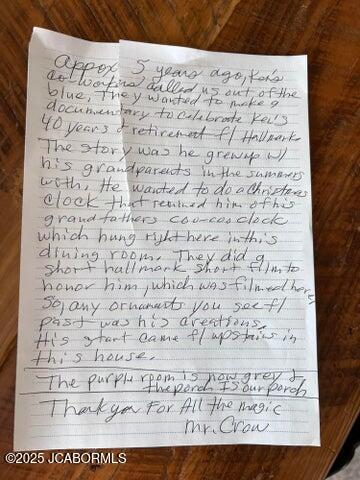 Appox 5 years ago, Ken's
co-workers called us out of the
blue, They wanted to make a
documentary to celebrate Ken's
40 years & retirement f/ Hallmark
The story was he grewup w/
his grandparents in the summers
with. He wanted to do a Christmas
clock that remined him of his
grandfathers coo-coo clock
which hung right here in this
dining room. They did a
short hallmark short film to
honor him, which was filmed here,
So, any ornaments you see f/
past was his creations.
His start came f/ upstairs in
this house.
The purple room is now grey &
the porch is our porch
Thank you For All the magic
Mr. Crow
©2025 JCABORMLS